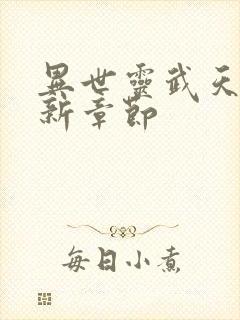 異世靈武天
新章節
每日小煮